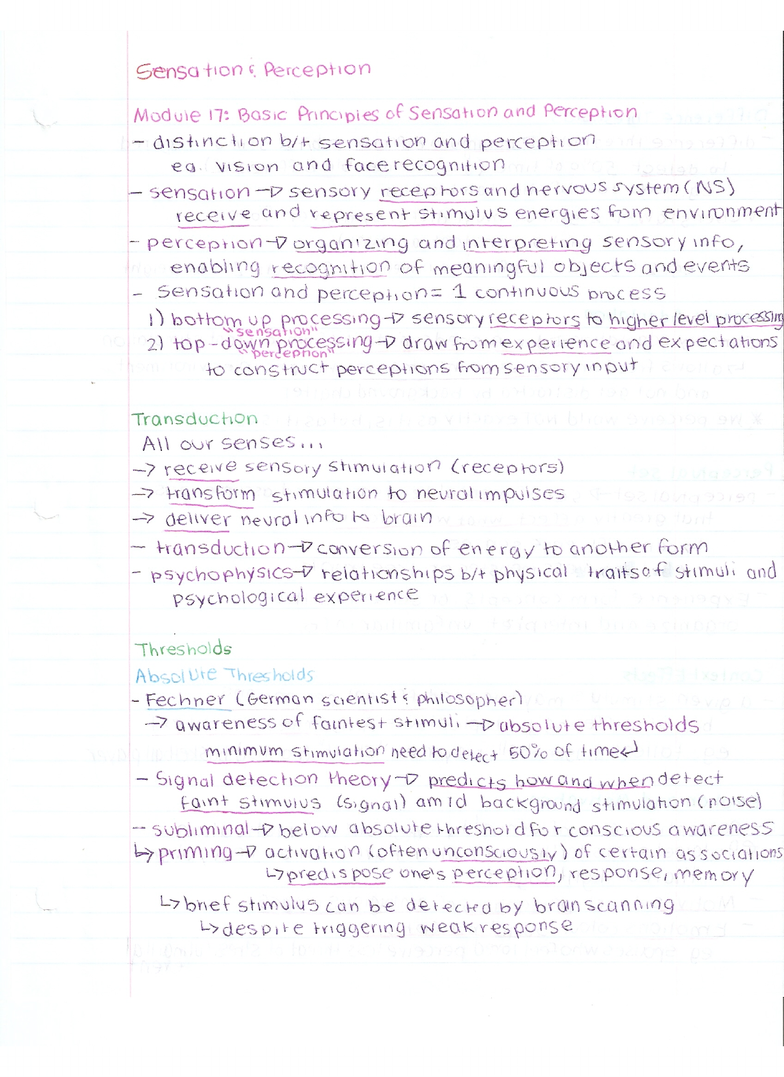 Sensation & Perception
Module 17: Basic Principles of Sensation and Perception
- distinction b/t sensation and perception
eg. vision and face recognition
- sensation → sensory receptors and nervous system (NS)
receive and represent stimulus energies from environment
- perception → organizing and interpreting sensory info,
enabling recognition of meaningful objects and events
- sensation and perception = 1 continuous process
1) bottom up processing → sensory receptors to higher level processing
"sensation"
2) top-down processing → draw from experience and expectations
"perception"
to construct perceptions from sensory input
Transduction
All our senses...
→ receive sensory stimulation (receptors)
→ transform stimulation to neural impulses
→ deliver neural info to brain
- transduction → conversion of energy to another form
- psychophysics → relationships b/t physical traits of stimuli and
psychological experience
Thresholds
Absolute Thresholds
- Fechner (German scientist & philosopher)
→ awareness of faintest stimuli → absolute thresholds
minimum stimulation need to detect 50% of time ↵
- Signal detection theory → predicts how and when detect
faint stimulus (signal) amid background stimulation (noise)
- subliminal → below absolute threshold for conscious awareness
↳ priming → activation (often unconsciously) of certain associations
↳ predispose one's perception, response, memory
↳ brief stimulus can be detected by brain scanning
↳ despite triggering weak response